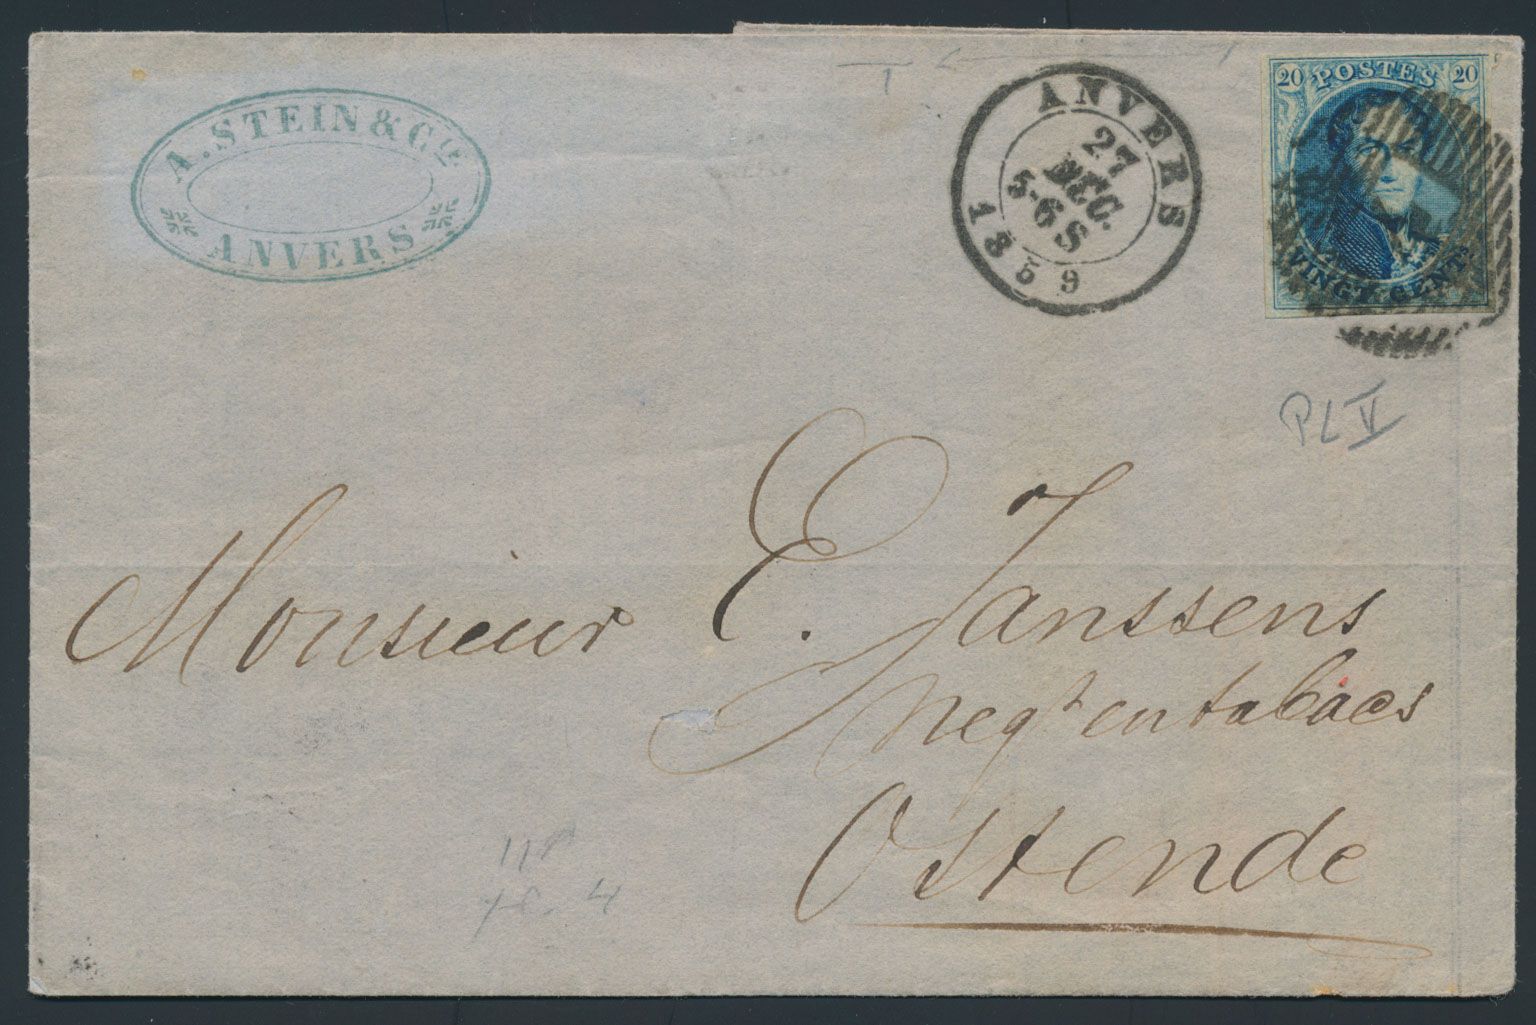 A. STEIN & Cie
ANVERS
ANVERS
27
DEC.
5-6 S
1859
20 POSTES 20
VINGT CENTS
PL V
Monsieur E. Janssens
Negt en tabacs
Ostende